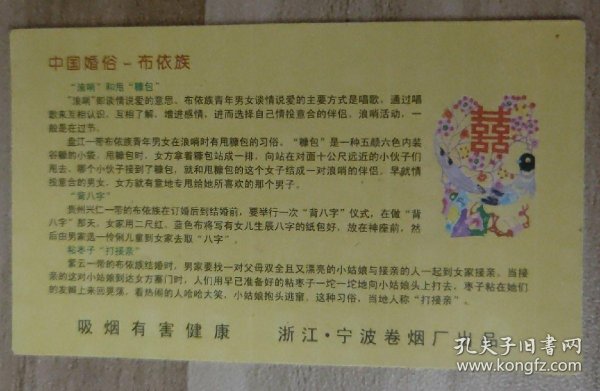 中国婚俗－布依族
“浪哨”和甩“糠包”
“浪哨”即谈情说爱的意思、布依族青年男女谈情说爱的主要方式是唱歌，通过唱
歌来互相认识、互相了解、增进感情，进而选择自己情投意合的伴侣，浪哨活动，一
般是在过节。
盘江一带布依族青年男女在浪哨时有甩糠包的习俗，“糠包”是一种五颜六色内装
谷糠的小袋，甩糠包时，女方拿着糠包站成一排，向站在对面十公尺远近的小伙子们
甩去、哪个小伙子接到了糠包，就和甩糠包的这个女子结成一对浪哨的伴侣，早就情
投意合的男女，女方就有意地专甩给她所喜欢的那个男子。
“背八字”
贵州兴仁一带的布依族在订婚后到结婚前，要举行一次“背八字”仪式，在做“背
八字”那天，女家用二尺红、蓝色布将写有女儿生辰八字的纸包好，放在神座前，然
后由男家选一伶俐儿童到女家去取“八字”。
粘枣子“打接亲”
紫云一带的布依族结婚时，男家要找一对父母双全且又漂亮的小姑娘与接亲的人一起到女家接亲、当接
亲的这对小姑娘到达女方寨门时，人们用早已准备好的粘枣子一坨一坨地向小姑娘头上打去、枣子粘在她们
的发辫上来回晃荡，看热闹的人哈哈大笑，小姑娘抱头逃窜，这种习俗，当地人称“打接亲”。
囍
吸烟有害健康 浙江·宁波卷烟厂出品
孔夫子旧书网
www.kongfz.com